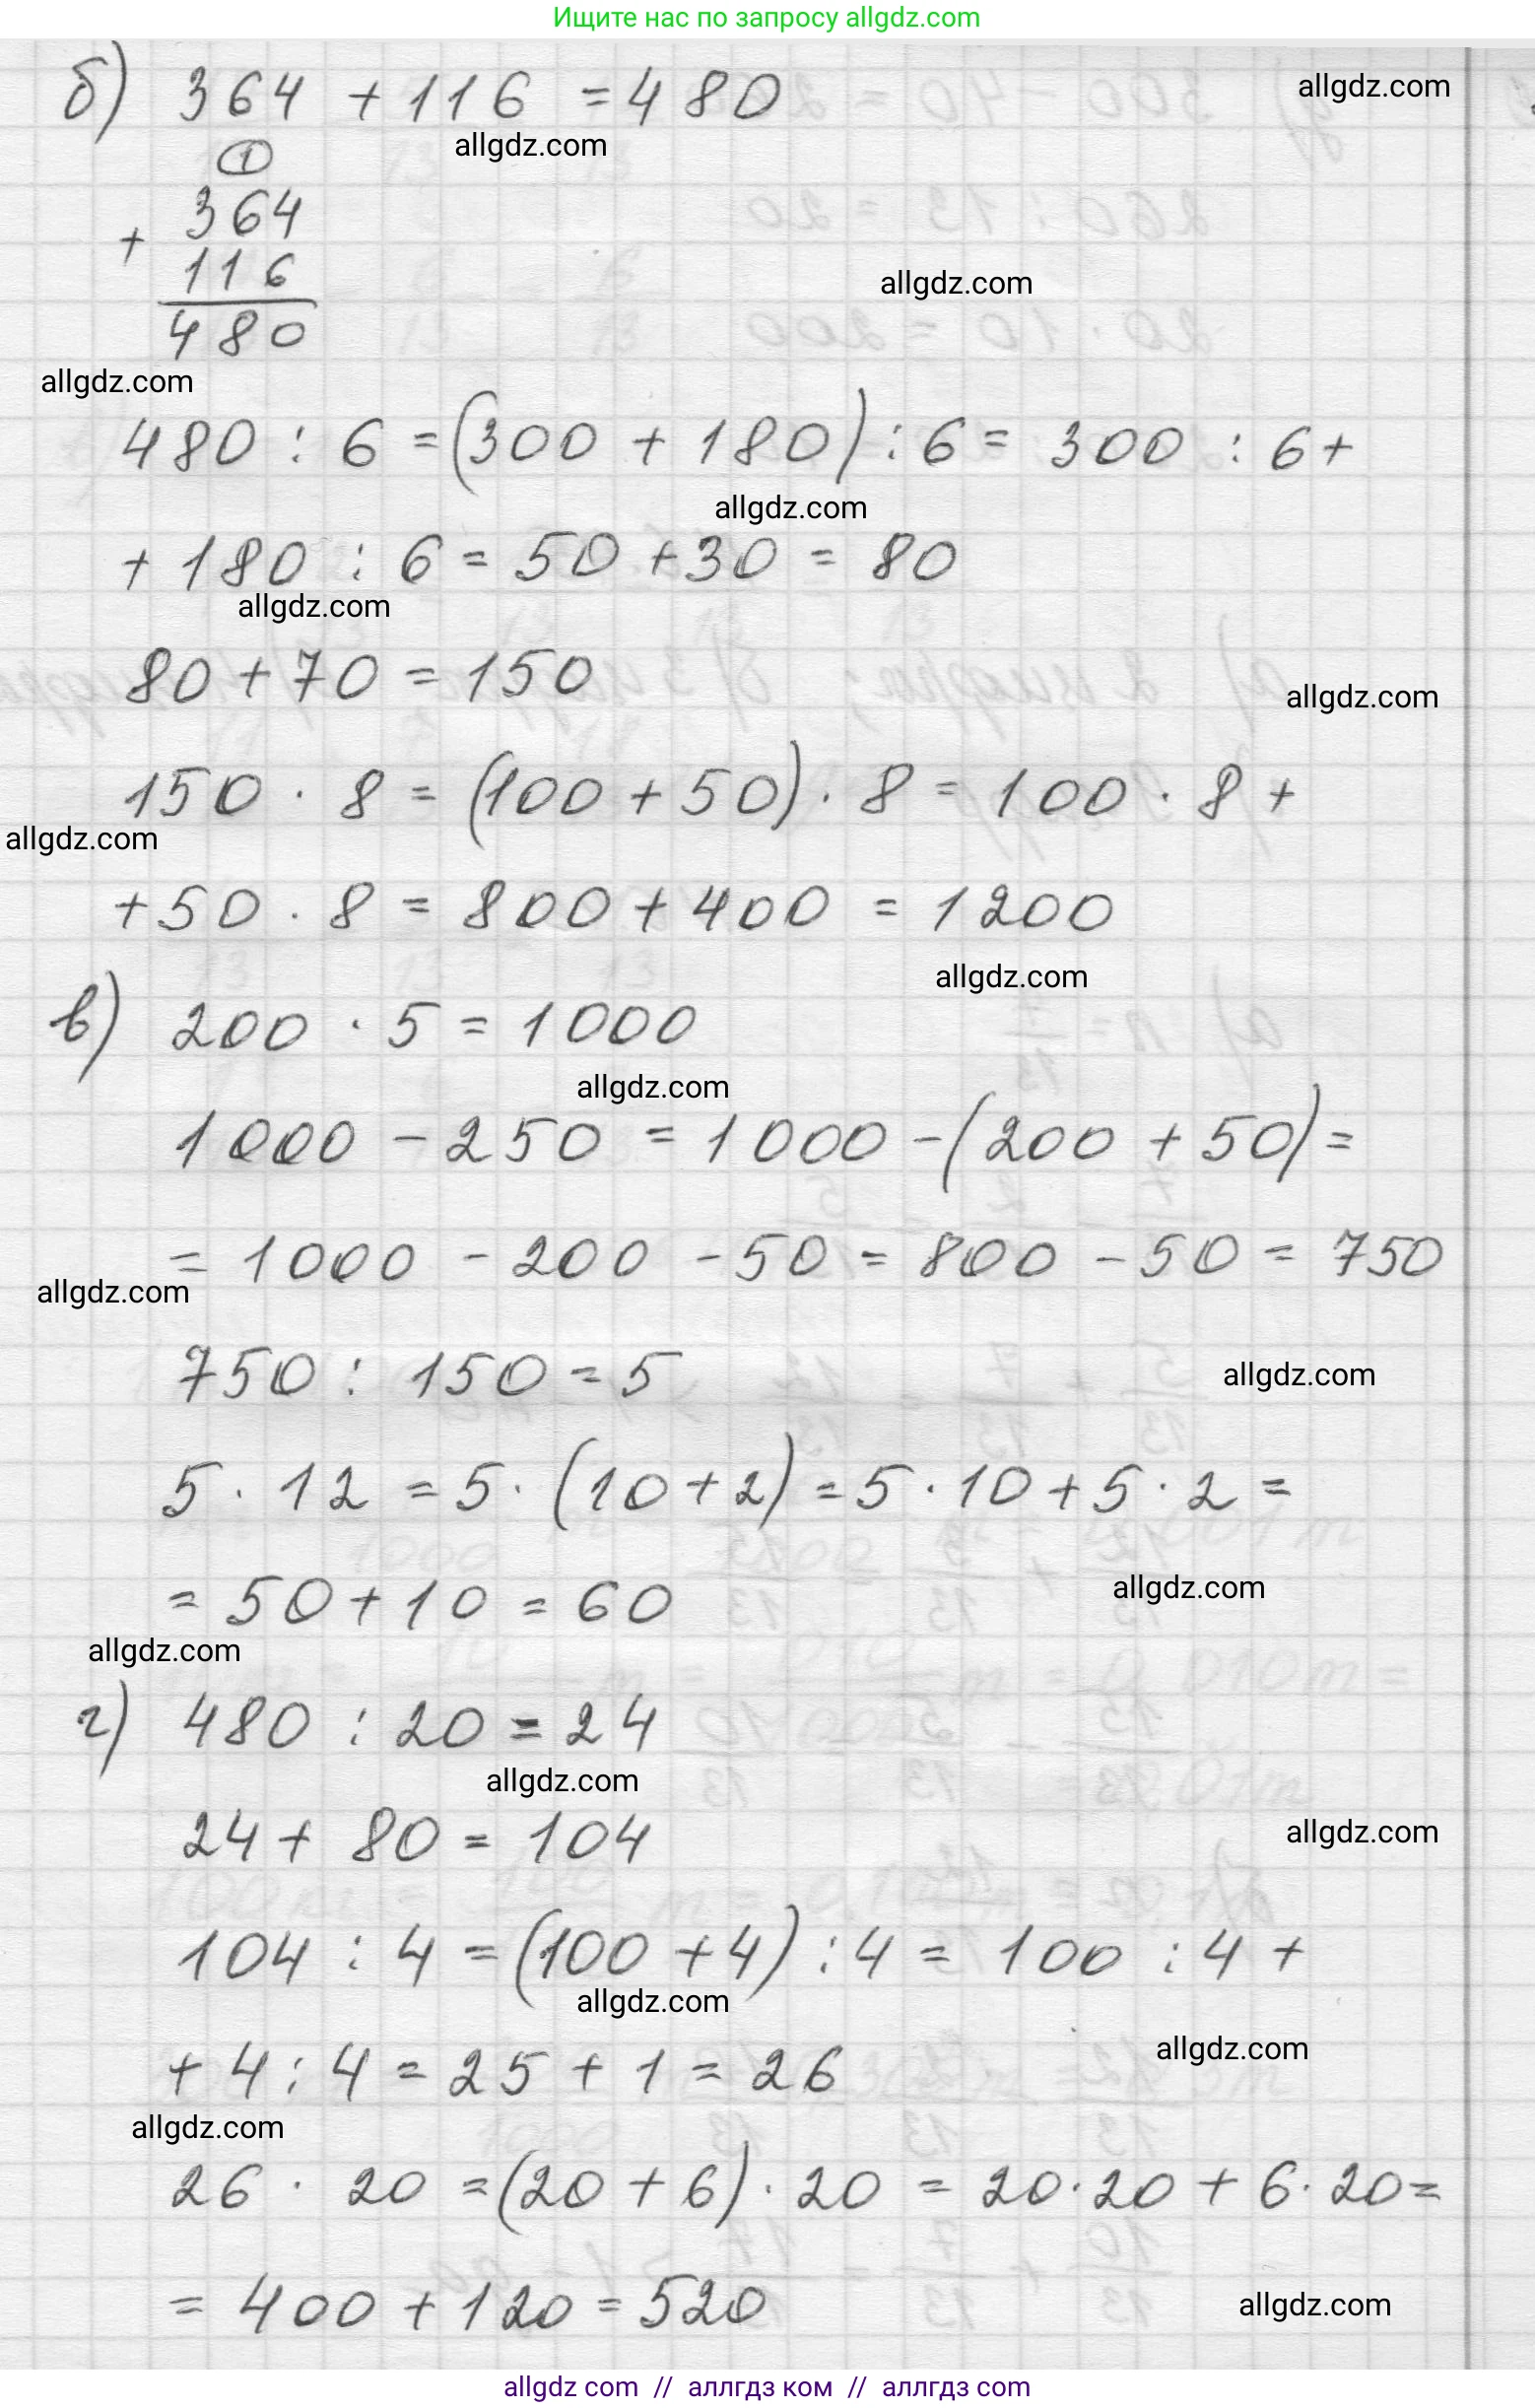 Ищите нас по запросу allgdz.com
б) 364 + 116 = 480
allgdz.com
allgdz.com
1
364
+
116
480
allgdz.com
allgdz.com
480 : 6 = (300 + 180) : 6 = 300 : 6 +
allgdz.com
+ 180 : 6 = 50 + 30 = 80
allgdz.com
80 + 70 = 150
allgdz.com
150 · 8 = (100 + 50) · 8 = 100 · 8 +
allgdz.com
+ 50 · 8 = 800 + 400 = 1200
allgdz.com
в) 200 · 5 = 1000
allgdz.com
1000 - 250 = 1000 - (200 + 50) =
= 1000 - 200 - 50 = 800 - 50 = 750
allgdz.com
750 : 150 = 5
allgdz.com
5 · 12 = 5 · (10 + 2) = 5 · 10 + 5 · 2 =
= 50 + 10 = 60
allgdz.com
allgdz.com
г) 480 : 20 = 24
allgdz.com
24 + 80 = 104
allgdz.com
104 : 4 = (100 + 4) : 4 = 100 : 4 +
allgdz.com
+ 4 : 4 = 25 + 1 = 26
allgdz.com
allgdz.com
26 · 20 = (20 + 6) · 20 = 20 · 20 + 6 · 20 =
= 400 + 120 = 520
allgdz.com
allgdz com // аллгдз ком // аллгдз com